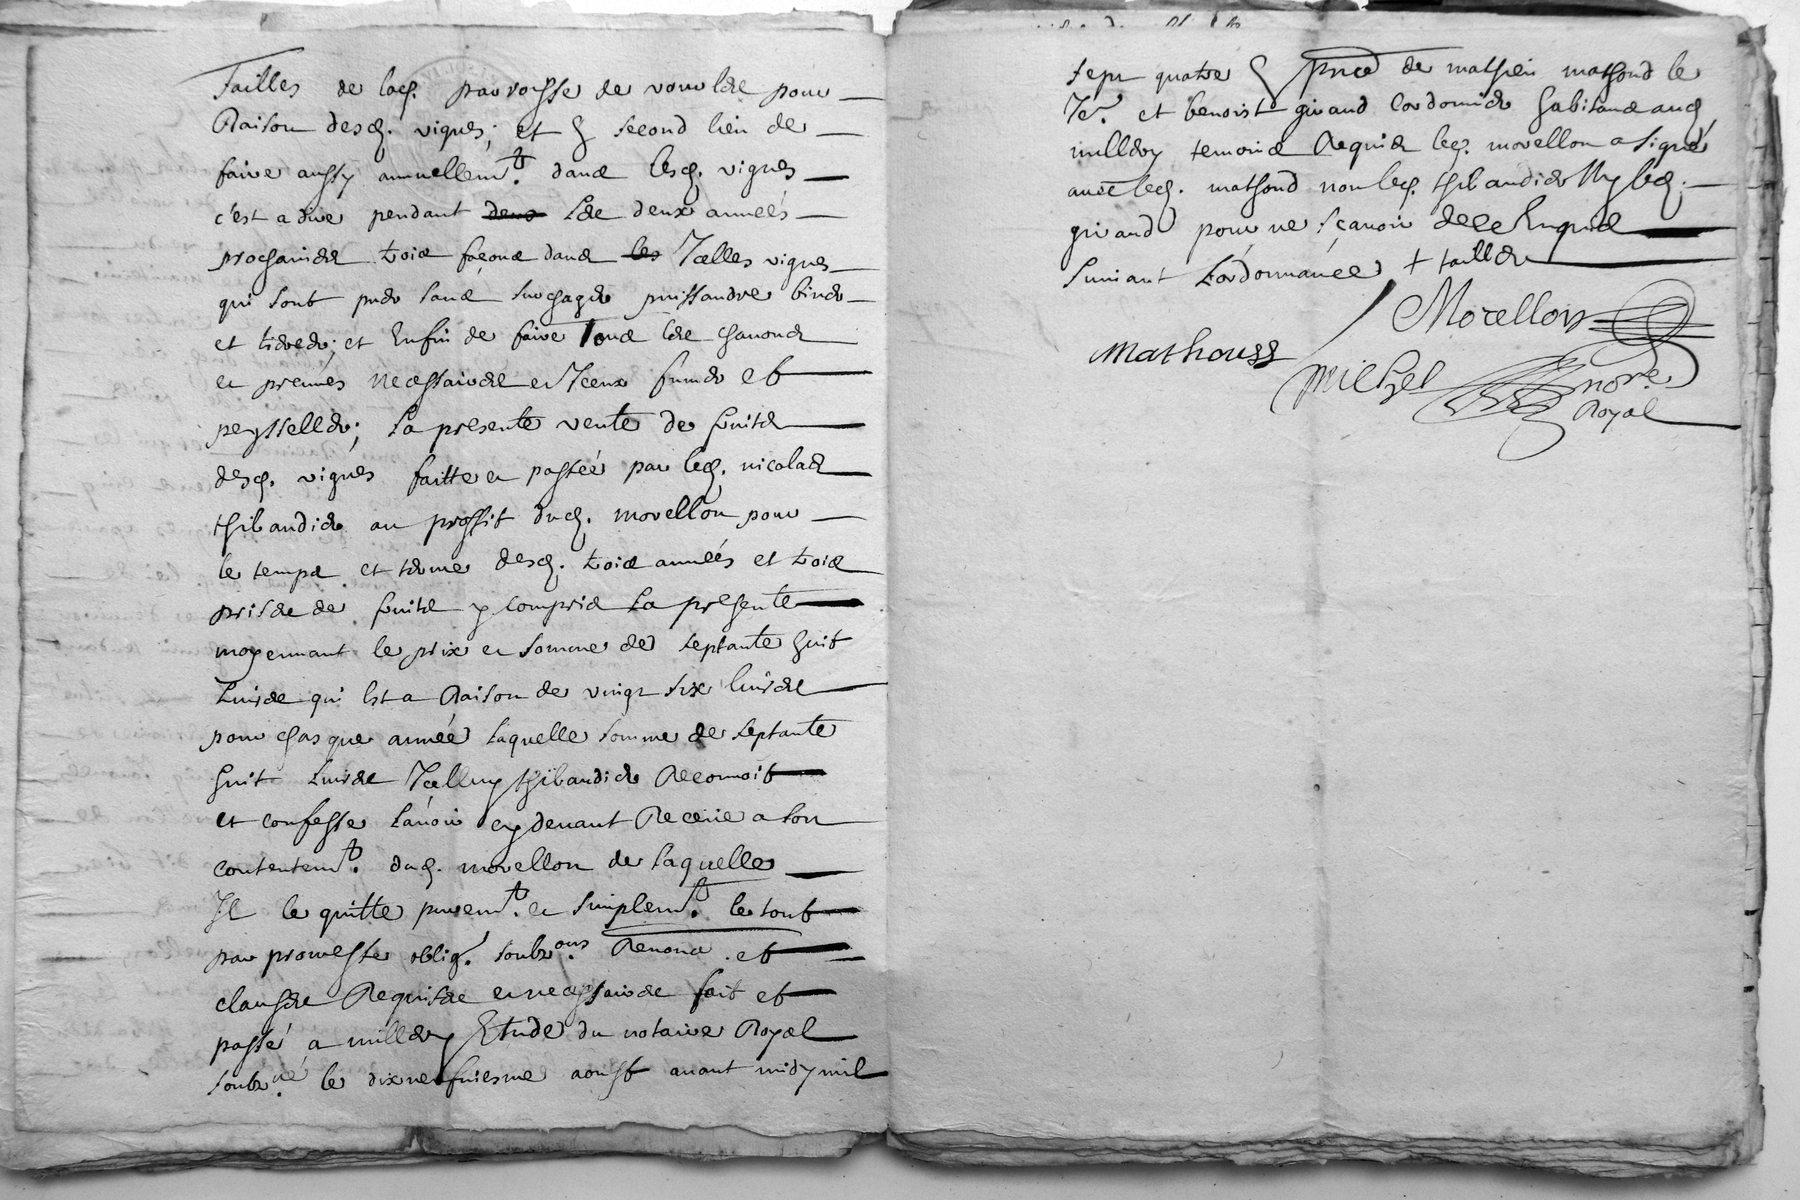 Tailles de lad. parroisse de vourles pour
Raison desd. vignes; et en second lieu de
faire aussy annuellemt. dans lesd. vignes
c'est a dire pendant deux les deux années
prochaines trois façons dans les Icelles vignes
qui sont puder sans surcharger puissandre biner
et tiercer; et Enfin de faire tous les chanons
et preunes necessaires et Iceux fumer et
peysseller; La presente vente de fruits
desd. vignes faitte et passée par led. nicolas
thibaudier au proffit dud. morellon pour
le temps et terme desd. trois années et trois
prises de fruits y compris La presente
moyennant le prix et somme de septante huit
Livres qui Est a Raison de vingt six livres
pour chasque année Laquelle somme de septante
huit Livres Icelluy thibaudier Reconnoit
et confesse L'avoir cy devant Receue a son
contentemt. dud. morellon de Laquelle
Il le quitte puremt. et simplemt. le tout
par promesse oblig. soubz.ons Renons. et
clauses Requises et necessaires fait et
passé a millery Etude du notaire Royal
soubz.né le dixneufviesme aoust avant midy mil
sept quatre en pnce de mathieu mathoud le
Je. et benoist giraud cordonnier habitans aud.
millery temoins Requis led. morellon a signé
avec led. mathoud non led. thibaudier Ny led.
giraud pour ne sçavoir de ce Enquis
suivant L'ordonnance + tailler
Morellon
Mathouss
Michel
nore.
Royal